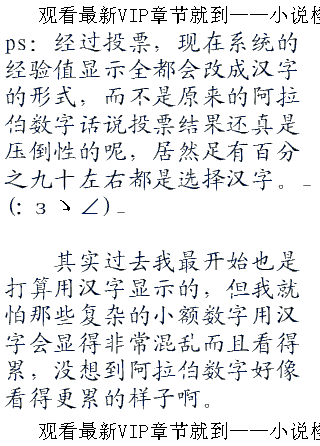 观看最新VIP章节就到——小说检
ps：经过投票，现在系统的
经验值显示全都会改成汉字
的形式，而不是原来的阿拉
伯数字话说投票结果还真是
压倒性的呢，居然足有百分
之九十左右都是选择汉字。_
(: з ヽ∠)_
其实过去我最开始也是
打算用汉字显示的，但我就
怕那些复杂的小额数字用汉
字会显得非常混乱而且看得
累，没想到阿拉伯数字好像
看得更累的样子啊。
观看最新VIP章节就到——小说检